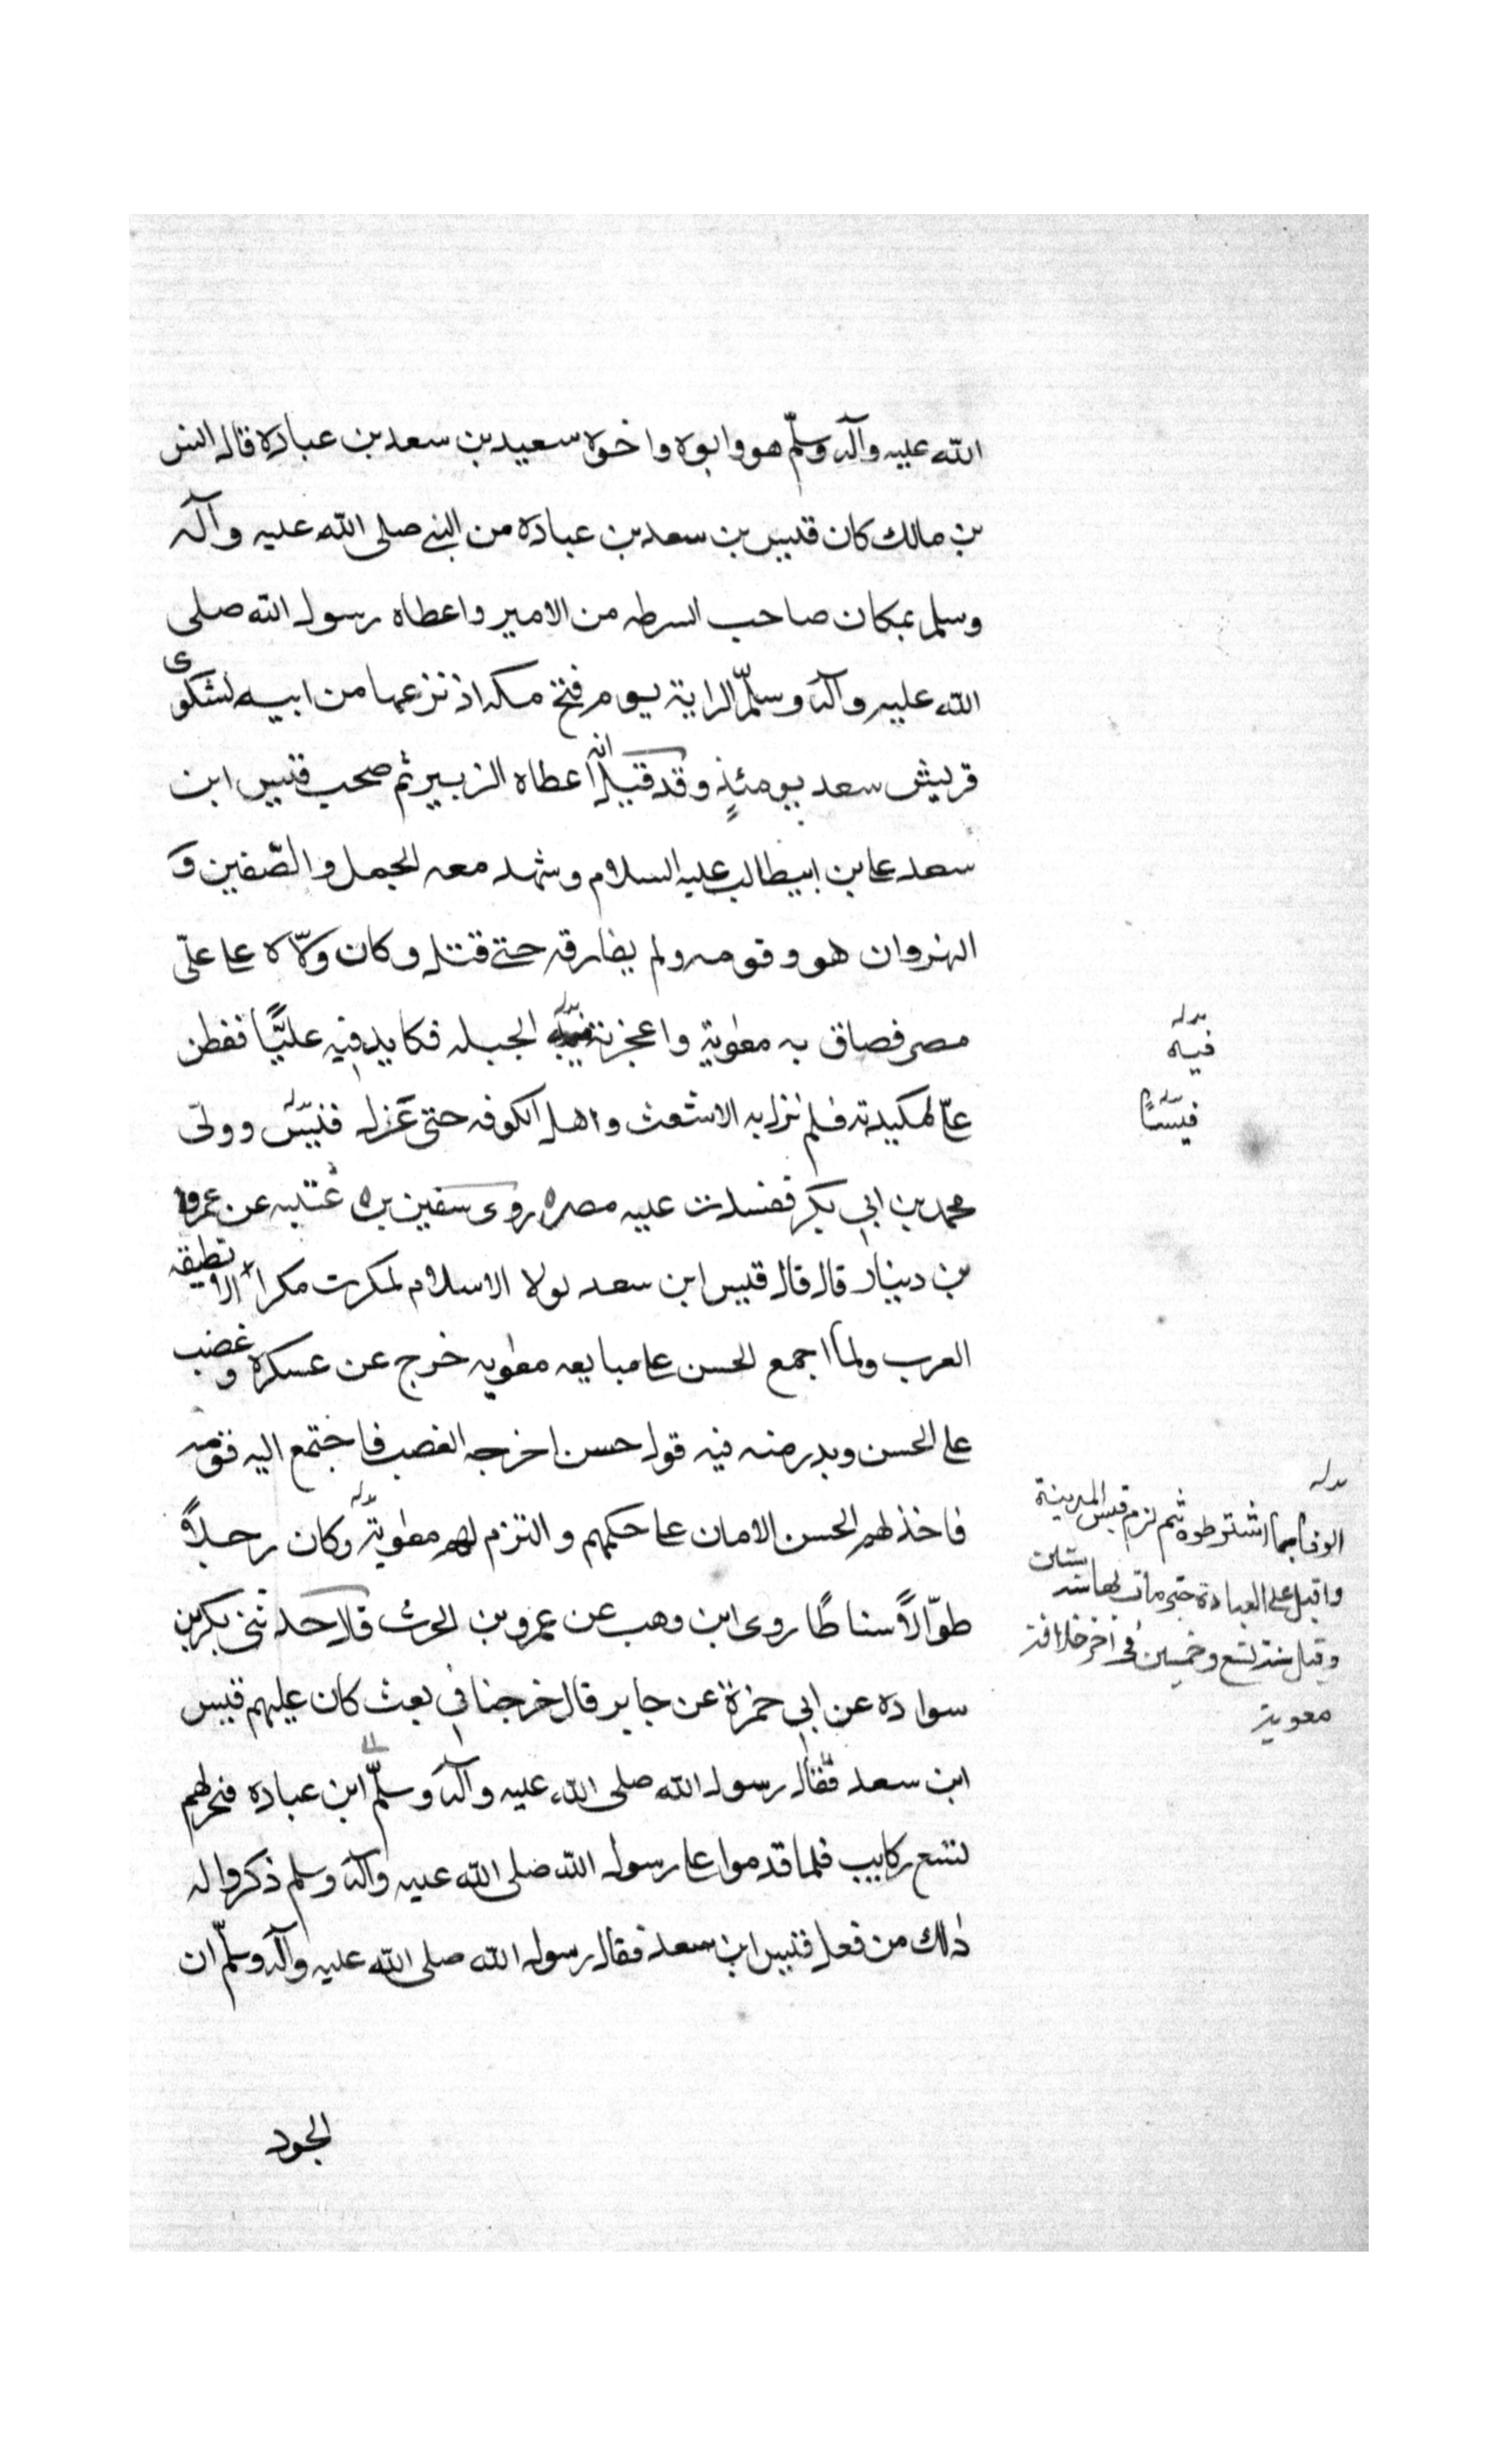 الله عليه وآله وسلّم هو وابوه واخوه سعيد بن سعد بن عباده قال انس
بن مالك كان قيس بن سعد بن عباده من النبي صلى الله عليه وآله
وسلم بمكان صاحب السرطه من الامير واعطاه رسول الله صلى
الله عليه وآله وسلّم الراية يوم فتح مكه اذ نزعها من ابيه لشكوى
قريش سعد يومئذٍ وقد قيل انه اعطاه الزبير ثم صحب قيس ابن
سعد عا بن ابيطالب عليه السلام وشهد معه الجمل والصّفين و
النهروان هو وقومه ولم يفارقه حتى قتل وكان ولّاه عا علّى
مصر فصاق به معوية واعجزته الجيله فكايد فيه عليًّا ففطن
عا لمكيدته فلم نزل به الاشعث واهل الكوفه حتى عزل قيس وولى
محمد بن ابي بكر ففسدت عليه مصره روى سفين بن عتبه عن عمرو
بن دينار قال قال قيس ابن سعد لولا الاسلام لمكرت مكرا لا تطيقه
العرب ولما اجمع الحسن عا مبايعه معويه خرج عن عسكره وغضب
على الحسن وبدر منه فيه قول حسن اخرجه الغصب فاجتمع اليه قومه
فاخذ لهم الحسن الامان عا حكمهم والتزم لهم معوية وكان رجلاً
طوّالاً سناطًا روى ابن وهب عن عمرو بن الحرث قال حدثنى بكر بن
سواده عن ابي حمزة عن جابر قال خرجنا في بعث كان عليهم قيس
ابن سعد فقال رسول الله صلى الله عليه وآله وسلّم ابن عباده فنحر لهم
تسع ركايب فلما قدموا عا رسول الله صلى الله عليه وآله وسلم ذكروا له
ذلك من فعل قيس ابن سعد فقال رسول الله صلى الله عليه وآله وسلّم ان
الجود
بدله
فيه
بدله
قيسًا
بدله
الوفا بما اشترطوه ثم لزم قيس المدينة
واقبل على العبادة حتى مات بها سنه ستين
وقيل سنة تسع وخمسين في اخر خلافة
معوية